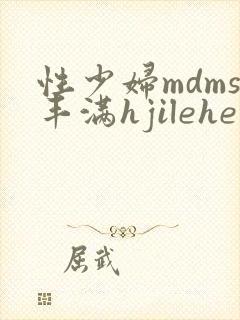 性少妇mdms
丰满hjilehe
屈武